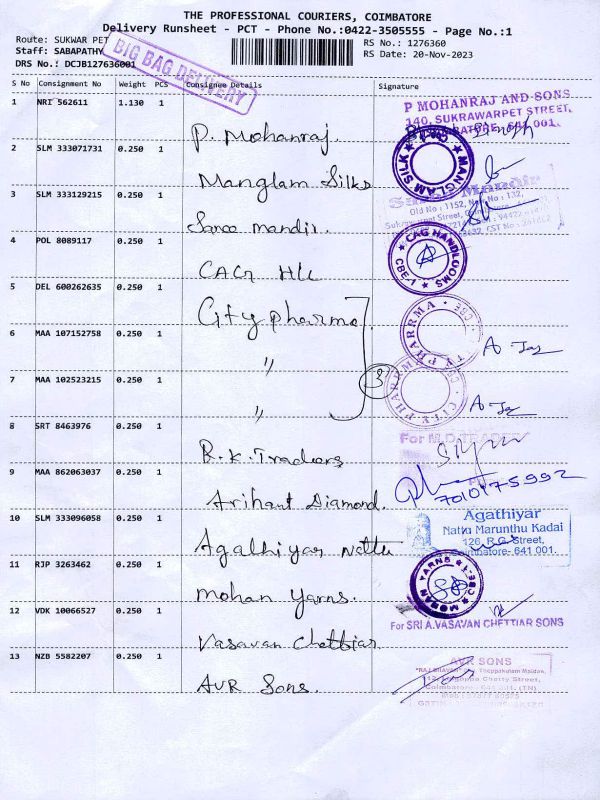 THE PROFESSIONAL COURIERS, COIMBATORE
Delivery Runsheet - PCT - Phone No.:0422-3505555 - Page No.:1
Route: SUKWAR PET
Staff: SABAPATHY
DRS No.: DCJB127636001
RS No.: 1276360
RS Date: 20-Nov-2023
BIG BAG DELIVERY
S No Consignment No Weight PCS Consignee Details Signature
1 NRI 562611 1.130 1 P. Mohanraj.
P MOHANRAJ AND SONS
140, SUKRAWARPET STREET,
641 001.
2 SLM 333071731 0.250 1 Manglam Silks
MANGLAM SILK
3 SLM 333129215 0.250 1 Saree mandir.
Mandir
Old No : 1152, New No : 132,
4 POL 8089117 0.250 1 CAG HL
CAG HANDLOOMS
CBE-1
5 DEL 600262635 0.250 1 City pharma
CITY PHARRMA
6 MAA 107152758 0.250 1 "
7 MAA 102523215 0.250 1 "
3
CITY PHARRMA
8 SRT 8463976 0.250 1 R.K. Traders
For
9 MAA 862063037 0.250 1 Arihant Diamond.
7010175992
10 SLM 333096058 0.250 1 Agathiyar Nattu
Agathiyar
Nattu Marunthu Kadai
126, R.G.Street,
Coimbatore- 641 001.
11 RJP 3263462 0.250 1 Mohan Yarns.
MOHAN YARNS
CBE-1
12 VDK 10066527 0.250 1 Vasavan Chettiar
For SRI A.VASAVAN CHETTIAR SONS
13 NZB 5582207 0.250 1 AVR Sons.
AVR SONS